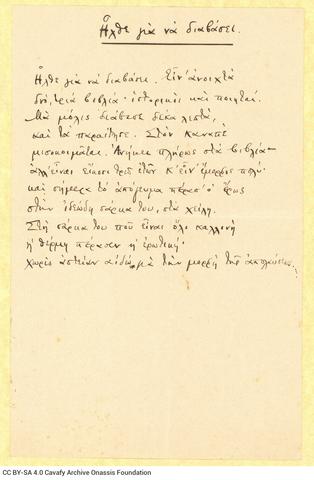 Ἦλθε γιὰ νὰ διαβάσει.
Ἦλθε γιὰ νὰ διαβάσει. Εἶν' ἀνοιχτὰ
δυό, τρία βιβλία· ἱστορικοὶ καὶ ποιηταί.
Μὰ μόλις διάβασε δέκα λεπτά,
καὶ τὰ παραίτησε. Στὸν καναπὲ
μισοκοιμᾶται. Ἀνήκει πλήρως στὰ βιβλία—
ἀλλ' εἶναι εἴκοσι τριῶ ἐτῶν, κ' εἶν' ἔμορφος πολύ·
καὶ σήμερα τὸ ἀπόγευμα πέρασ' ὁ ἔρως
στὴν ἰδεώδη σάρκα του, στὰ χείλη.
Στὴ σάρκα του ποὺ εἶναι ὅλο καλλονὴ
ἡ θέρμη πέρασεν ἡ ἐρωτική·
χωρὶς ἀστείαν αἰδῶ γιὰ τὴν μορφὴ τῆς ἀπολαύσεως..
CC BY-SA 4.0 Cavafy Archive Onassis Foundation